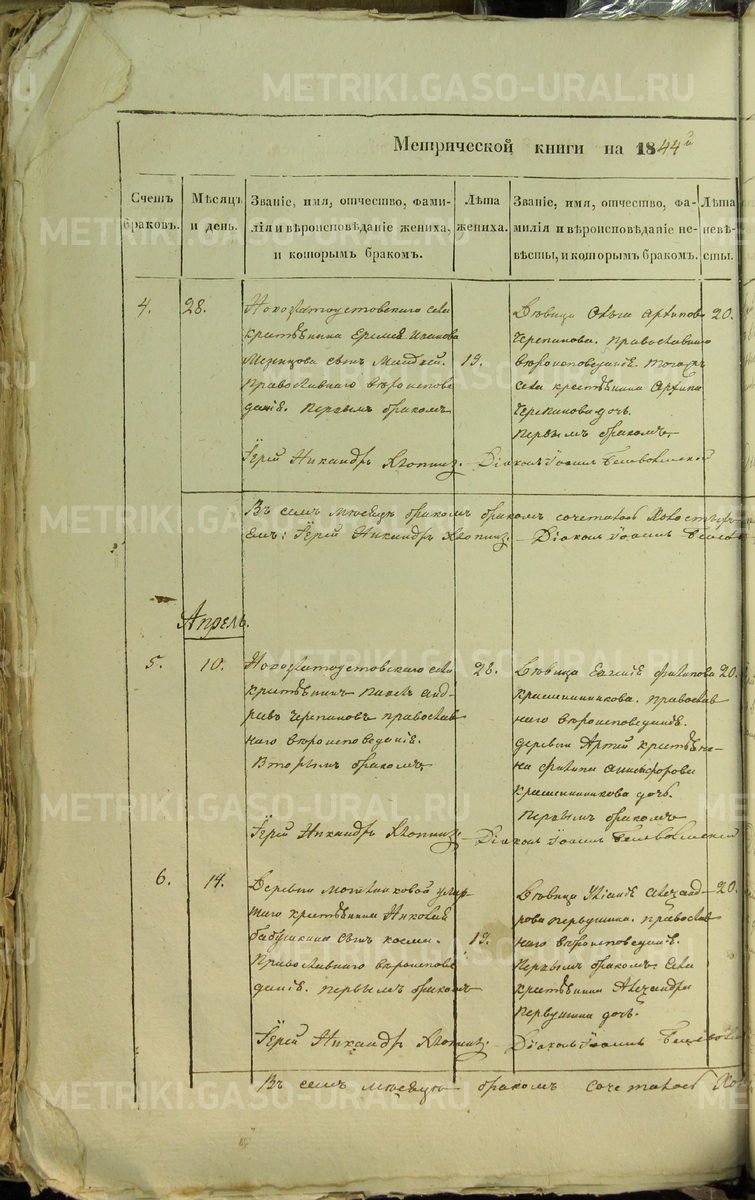 Метрической книги на 1844й
Счетъ браковъ.
Мѣсяцъ и день.
Званіе, имя, отчество, фами-
лія и вѣроисповѣданіе жениха,
и которымъ бракомъ.
Лѣта жениха.
Званіе, имя, отчество, фа-
милія и вѣроисповѣданіе не-
вѣсты, и которымъ бракомъ.
Лѣта невѣ-
сты.
4.
28.
Новозлатоустовскаго села
крестьянина Еремея Иванова
Мезенцова сынъ
православнаго вѣроиспове
данія. первымъ бракомъ
19.
Дѣвица Ольга Архипова
Черепанова. православнаго
вѣроисповеданія. тогожъ
села крестьянина Архипа
Черепанова дочь.
первымъ бракомъ.
20.
Іерей Никандръ Хлопинъ. Діаконъ Іоаннъ
Въ семъ мѣсяцѣ бракомъ сочеталось
Іерей Никандръ Хлопинъ. Діаконъ Іоаннъ
Апрель.
5.
10.
Новозлатоустовскаго села
крестьянинъ Павелъ Анд-
реевъ Черепановъ православ
наго вѣроисповеданія.
Вторымъ бракомъ.
28.
Дѣвица Евгенія Филипова
Крашенинникова. православ
наго вѣроисповеданія.
деревни Артей крестьяни-
на Филипа Никифорова
Крашенинникова дочь.
первымъ бракомъ
20.
Іерей Никандръ Хлопинъ. Діаконъ Іоаннъ
6.
14.
Деревни умер-
шаго крестьянина Николая
Бабушкина сынъ Косма.
православнаго вѣроиспове
данія. первымъ бракомъ
19.
Дѣвица Юліанія Александ-
рова Первушина. православ
наго вѣроисповеданія.
первымъ бракомъ села
крестьянина Александра
Первушина дочь.
20.
Іерей Никандръ Хлопинъ. Діаконъ Іоаннъ
Въ семъ мѣсяцѣ бракомъ сочеталось
METRIKI.GASO-URAL.RU